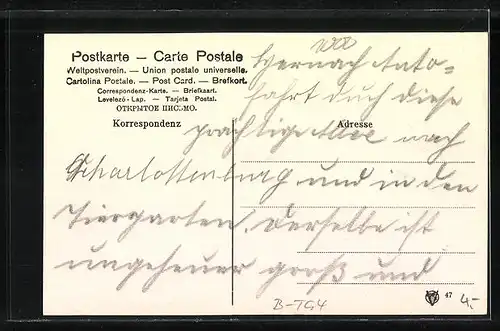 Postkarte — Carte Postale
Weltpostverein. — Union postale universelle.
Cartolina Postale. — Post Card. — Brefkort.
Correspondenz-Karte. — Briefkaart.
Levelező-Lap. — Tarjeta Postal.
ОТКРЫТОЕ ПИСЬМО.
Korrespondenz
Adresse
1000
Hernach Auto=
fahrt durch diese
prachtige Allee nach
Charlottenburg und in den
Tiergarten. Derselbe ist
ungeheuer groß und
B-TG4
47
4,-